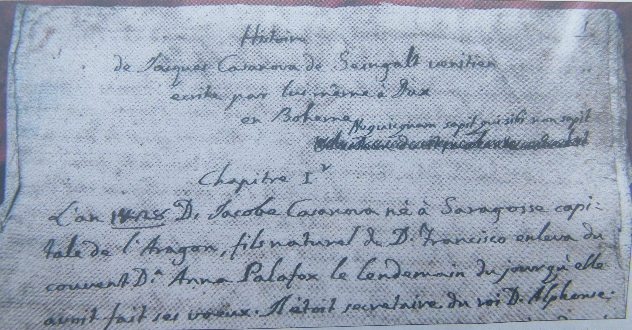 Histoire
de Jacques Casanova de Seingalt venitien
ecrite par lui même à Dux
en Boheme
Nequicquam sapit qui sibi non sapit
Chapitre I.r
L'an 1428 D. Jacobe Casanova né à Saragosse capi-
tale de l'Aragon, fils naturel de D. Francisco enleva du
couvent D.a Anna Palafox le lendemain du jour qu'elle
avoit fait ses voeux. Il étoit secretaire du roi D. Alphonse.